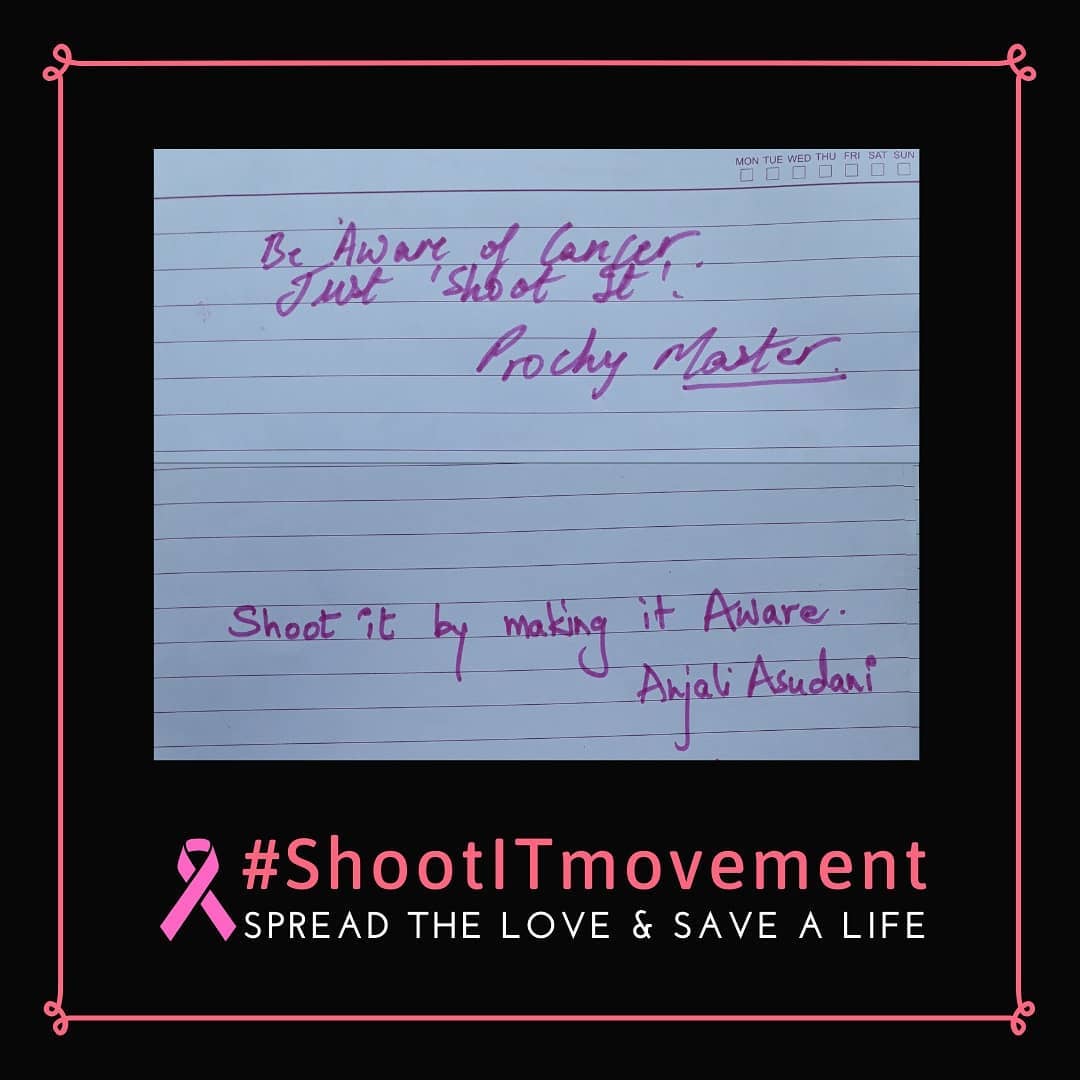 MON TUE WED THU FRI SAT SUN
Be Aware of Cancer.
Just 'Shoot It'.
Prochy Master.
Shoot it by making it Aware.
Anjali Asudani
#ShootITmovement
SPREAD THE LOVE & SAVE A LIFE